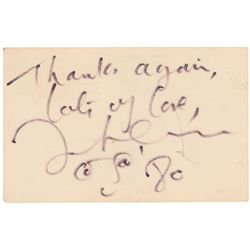 Thanks again,
lots of love,
'80